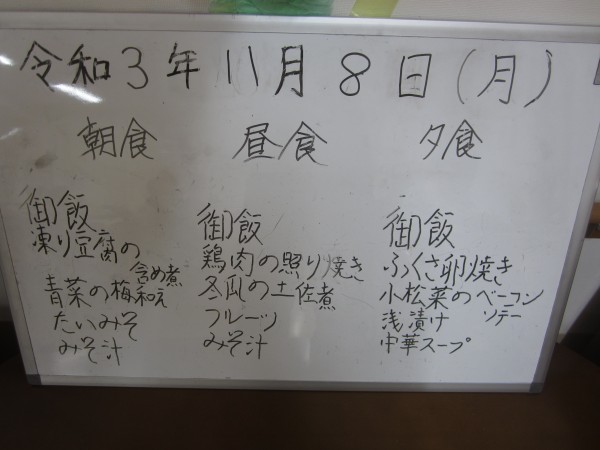 令和3年11月8日(月)
朝食
御飯
凍り豆腐の
含め煮
青菜の梅和え
たいみそ
みそ汁
昼食
御飯
鶏肉の照り焼き
冬瓜の土佐煮
フルーツ
みそ汁
夕食
御飯
ふくさ卵焼き
小松菜のベーコン
ソテー
浅漬け
中華スープ